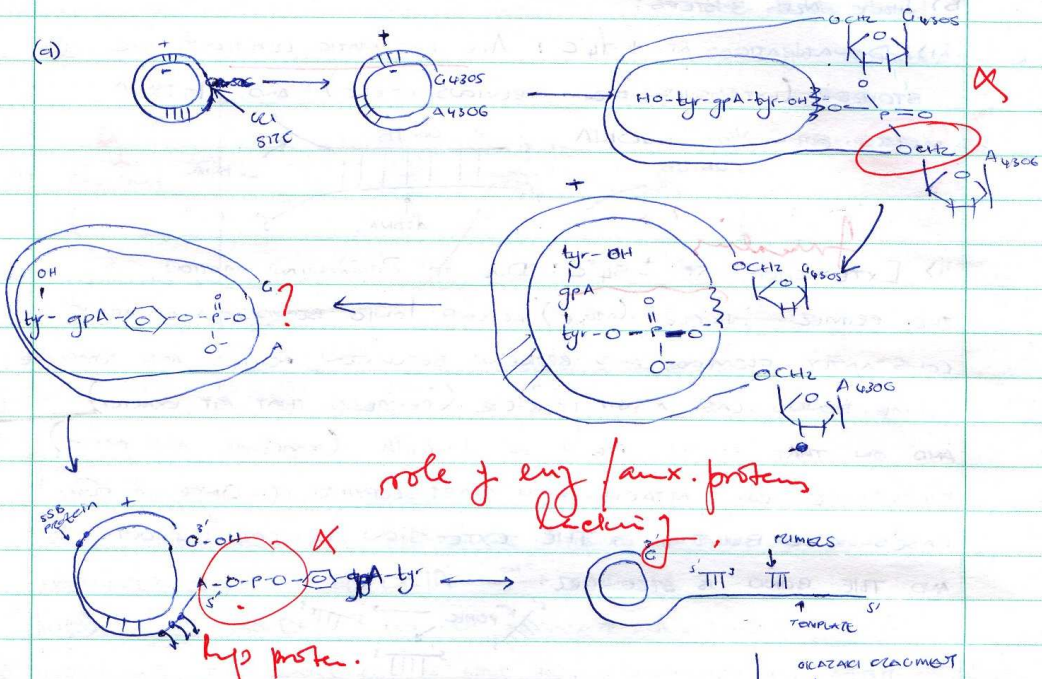 (a)
+
-
ORI
SITE
+
-
G4305
A4306
HO-tyr-gpA-tyr-OH
OCH2
G4305
O
O
O-
P=O
OCH2
A4306
O
+
tyr-OH
gpA
tyr-O-P-O-
O
O-
OCH2
G4305
O
OCH2
A4306
O
OH
tyr-gpA-O-O-P-O
O
O-
G
A
?
role of enz/aux. proteins
lacking
SSB
PROTEIN
+
3'
G-OH
A-O-P-O-O-gpA-tyr
5'
rep protein.
3'
G
5' 3'
PRIMERS
TEMPLATE
5'
OKAZAKI FRAGMENT